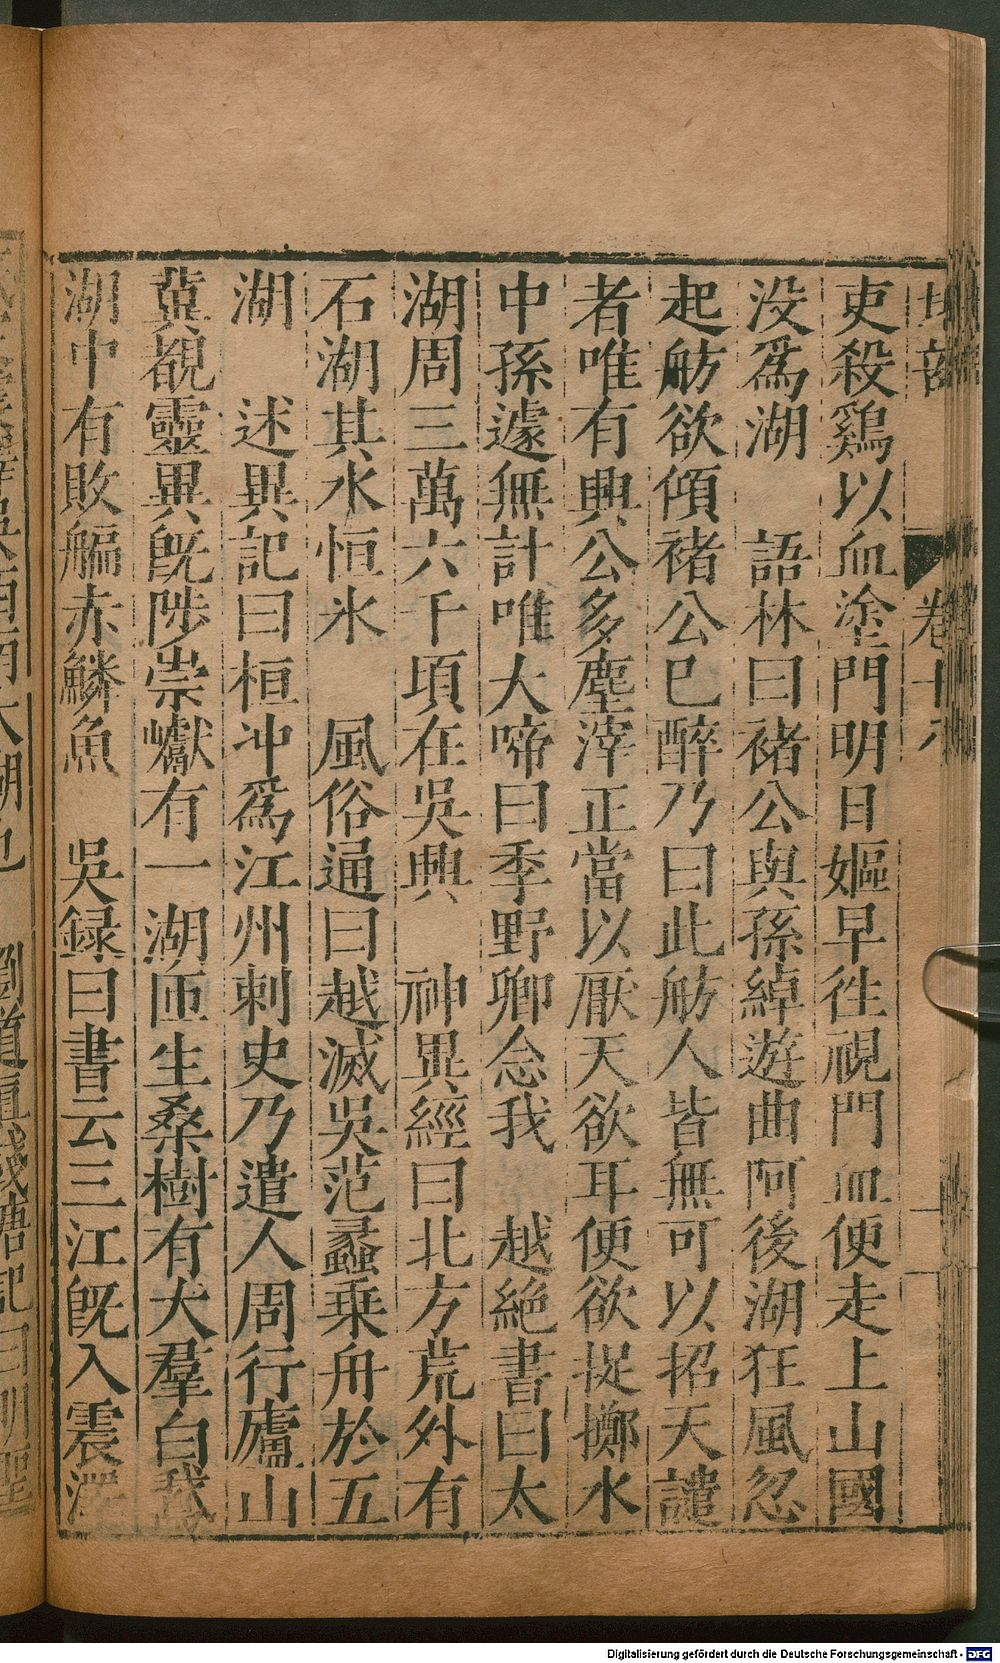 吏殺鷄以血塗門明日嫗早徃視門血便走上山國
没爲湖　語林曰禇公與孫綽遊曲阿後湖狂風忽
起舫欲傾禇公已醉乃曰此舫人皆無可以招天譴
者唯有興公多塵滓正當以厭天欲耳便欲捉擲水
中孫遽無計唯大啼曰季野卿念我　越絕書曰太
湖周三萬六千頃在吳興　神異經曰北方荒外有
石湖其水恒氷　風俗通曰越滅吳范蠡乗舟於五
湖　述異記曰桓冲爲江州刺史乃遣人周行廬山
兾覩靈異旣陟崇巘有一湖匝生桑樹有犬羣白鵞
湖中有敗艑赤鱗魚　吳録曰書云三江旣入震澤
卷十八
太湖也　劉道眞錢塘記曰明聖
Digitalisierung gefördert durch die Deutsche Forschungsgemeinschaft - DFG